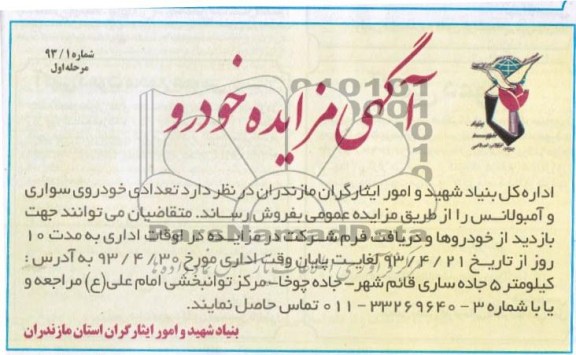 شماره ۹۳/۱
مرحله اول
آگهی مزایده خودرو
بنیاد شهید
اداره کل بنیاد شهید و امور ایثارگران مازندران در نظر دارد تعدادی خودروی سواری
و آمبولانس را از طریق مزایده عمومی بفروش رساند. متقاضیان می توانند جهت
بازدید از خودروها و دریافت فرم شرکت در مزایده در اوقات اداری به مدت ۱۰
روز از تاریخ ۹۳/۴/۲۱ لغایت پایان وقت اداری مورخ ۹۳/۴/۳۰ به آدرس :
کیلومتر ۵ جاده ساری قائم شهر- جاده چوخا- مرکز توانبخشی امام علی(ع) مراجعه و
یا با شماره ۳ - ۳۳۲۶۹۶۴۰ - ۰۱۱ تماس حاصل نمایند.
بنیاد شهید و امور ایثارگران استان مازندران
ParsNamadData